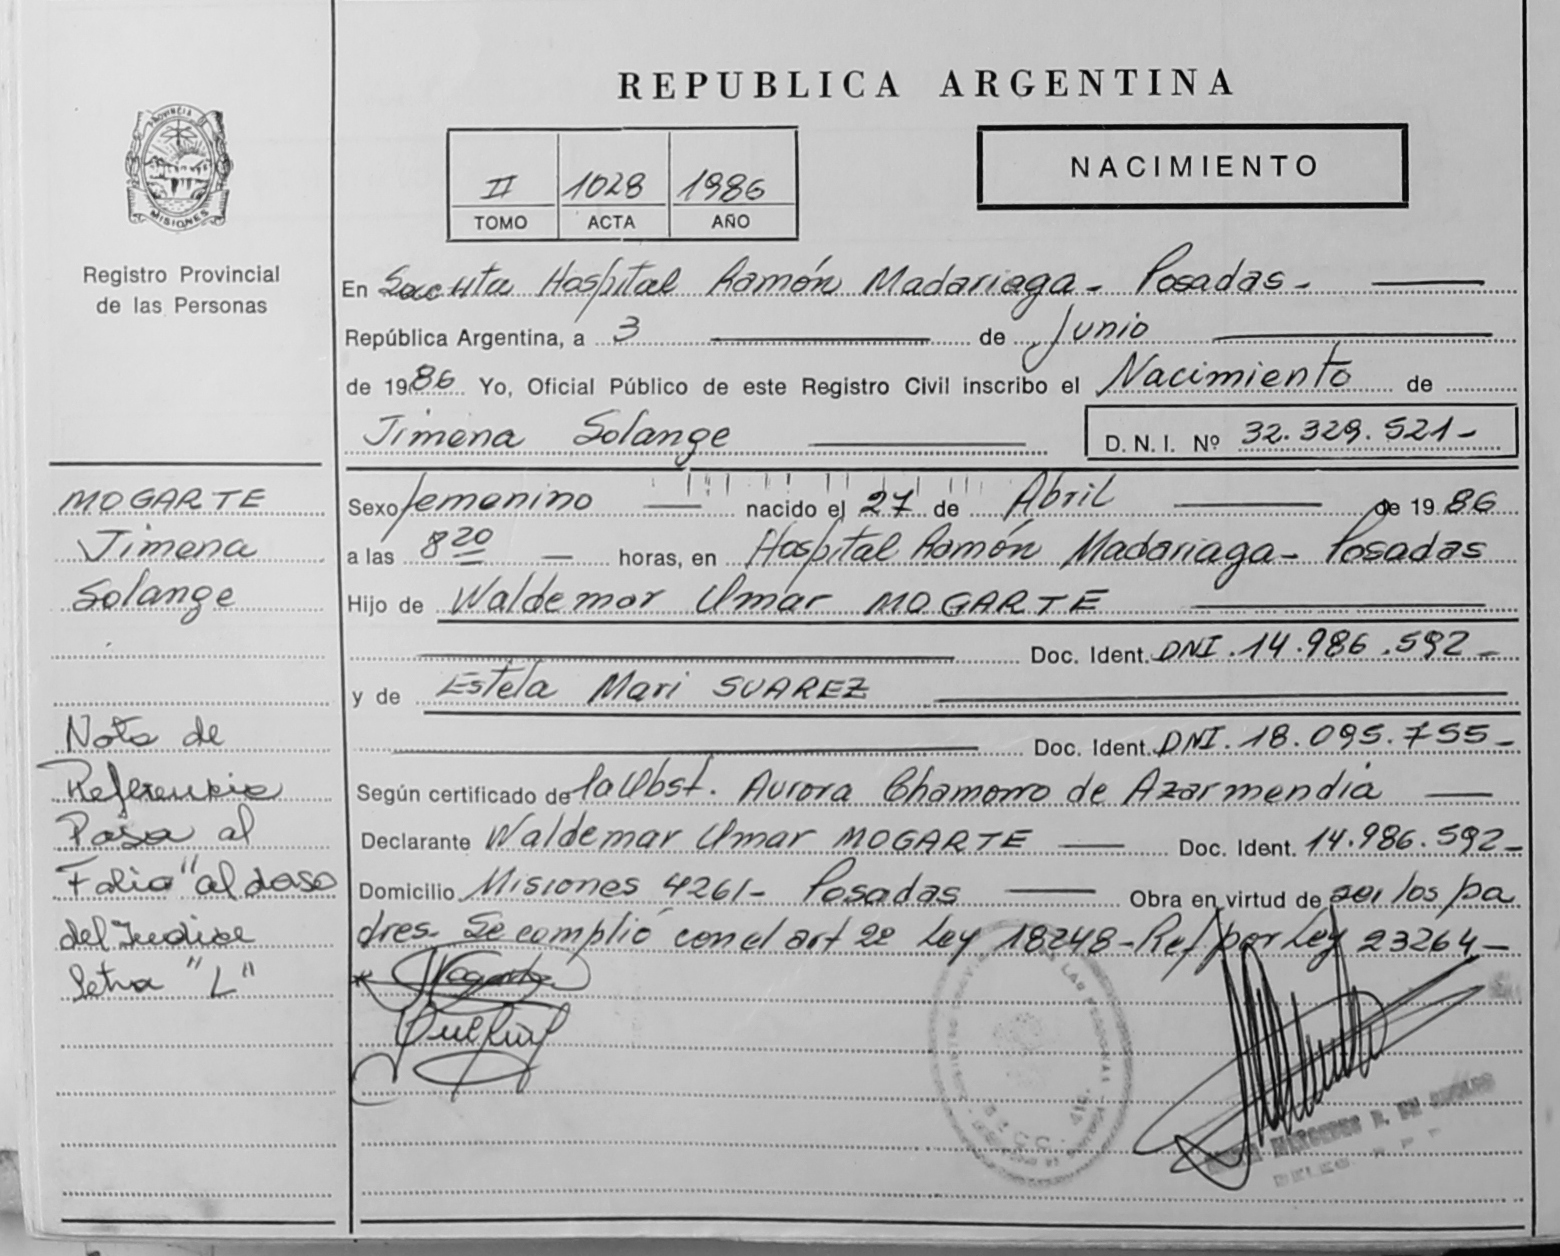 REPUBLICA ARGENTINA
PROVINCIA DE
MISIONES
Registro Provincial
de las Personas
II 1028 1986
TOMO ACTA AÑO
NACIMIENTO
En Hospital Ramón Madariaga - Posadas -
República Argentina, a 3 de Junio
de 1986 Yo, Oficial Público de este Registro Civil inscribo el Nacimiento de
Jimena Solange D. N. I. Nº 32.329.521-
MOGARTE
Jimena
Solange
Nota de
Referencia
Pasa al
Folio "al dorso
del Indice
letra "L"
Sexo femenino nacido el 27 de Abril de 1986
a las 8 20 horas, en Hospital Ramón Madariaga - Posadas
Hijo de Waldemar Omar MOGARTE
Doc. Ident. DNI. 14.986.592-
y de Estela Mari SUAREZ
Doc. Ident. DNI. 18.095.755-
Según certificado de la Obst. Aurora Chamorro de Azarmendia
Declarante Waldemar Omar MOGARTE Doc. Ident. 14.986.592-
Domicilio Misiones 4261- Posadas Obra en virtud de ser los pa
dres. Se cumplió con el art 2º Ley 18248-Ref por Ley 23264-